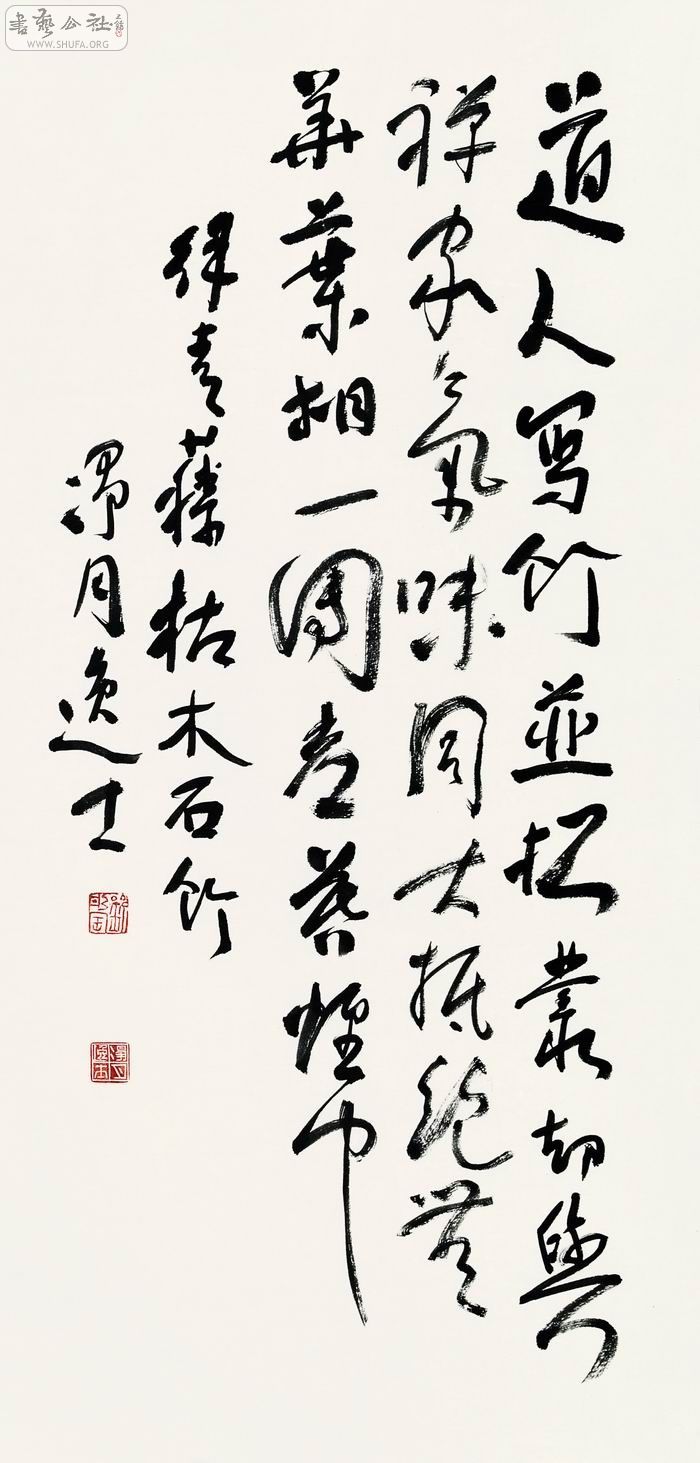 書藝公社
WWW.SHUFA.ORG
道人写竹並枯叢却與
禅家氣味同大抵絕無
華葉相一團煙中
徐青藤枯木石竹
月逸士